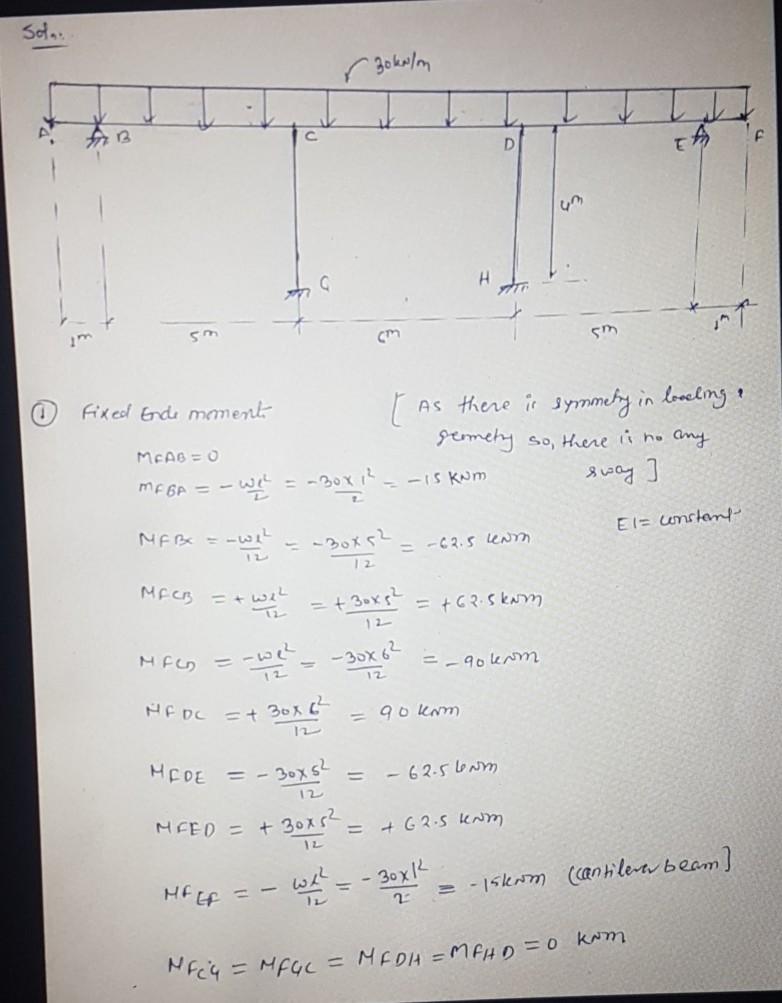 Soln:.
30kN/m
A B C D E F
4m
G H
1m 5m 6m 5m 1m
① Fixed Ends moments [ As there is symmetry in loading &
geomety so, there is no any
sway ]
MFAB = 0
MFBA = -wl²/2 = -30×1²/2 = -15 KNm
EI = constant
MFBC = -wl²/12 = -30×5²/12 = -62.5 kNm
MFCB = +wl²/12 = +30×5²/12 = +62.5 kNm
MFCD = -wl²/12 = -30×6²/12 = -90 kNm
MFDC = +30×6²/12 = 90 kNm
MFDE = -30×5²/12 = -62.5 kNm
MFED = +30×5²/12 = +62.5 kNm
MFEF = -wl²/12 = -30×1²/2 = -15kNm (cantilever beam]
MFCG = MFGC = MFDH = MFHD = 0 KNm